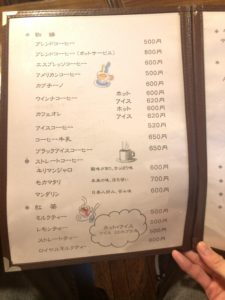 珈琲
ブレンドコーヒー 500円
ブレンドコーヒー(ポットサービス) 800円
エスプレッソコーヒー 500円
アメリカンコーヒー 500円
カプチーノ 600円
ウインナコーヒー ホット 600円
アイス 620円
カフェオレ ホット 600円
アイス 620円
アイスコーヒー 550円
コーヒー牛乳 650円
ブラックアイスコーヒー 650円
ストレートコーヒー
キリマンジャロ 600円
モカマタリ 700円
マンダリン 600円
紅茶
ミルクティー 500円
レモンティー 500円
ストレートティー 500円
ロイヤルミルクティー 600円
ホット・アイス